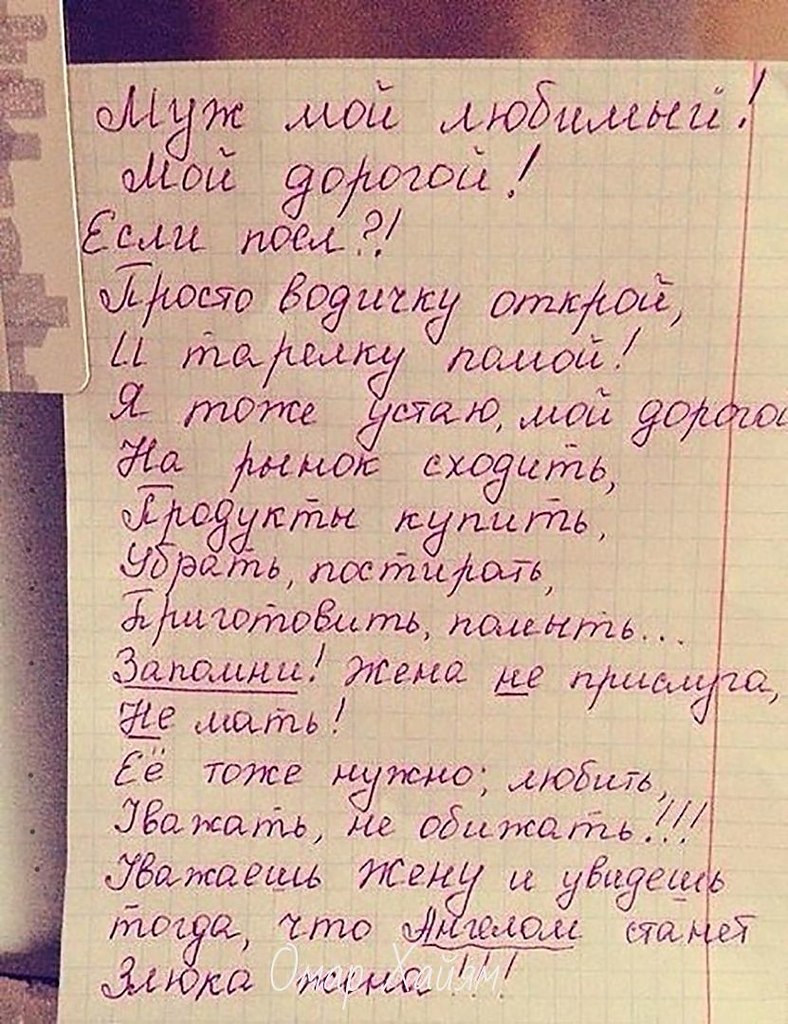 Муж мой любимый!
Мой дорогой!
Если поел?!
Просто водичку открой,
И тарелку помой!
Я тоже устаю, мой дорогой
На рынок сходить,
Продукты купить,
Убрать, постирать,
Приготовить, помыть...
Запомни! Жена не прислуга,
Не мать!
Её тоже нужно; любить,
Уважать, не обижать!!!
Уважаешь жену и увидешь
тогда, что Ангелом станет
Злюка жена!!!
Омар Хайям